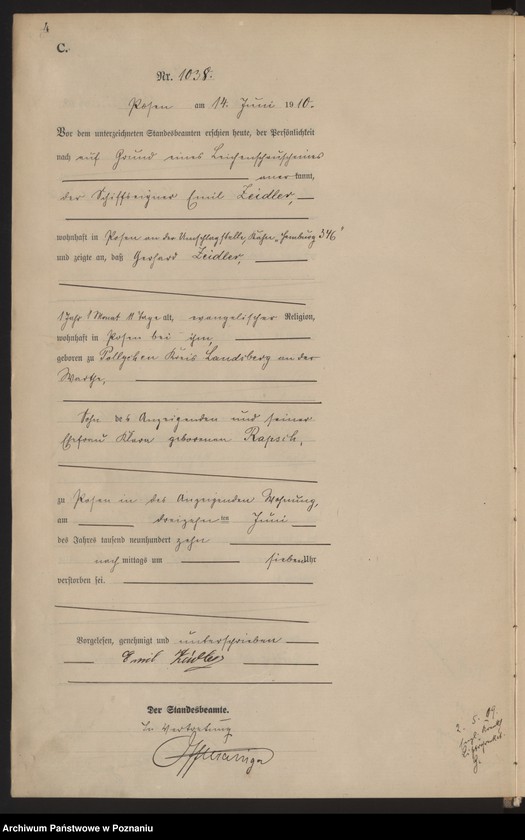 4
C.
Nr. 1038.
Posen am 14. Juni 1910.
Vor dem unterzeichneten Standesbeamten erschien heute, der Persönlichkeit
nach auf Grund eines Leichenschauscheines
anerkannt,
der Schiffseigner Emil Zeidler,
wohnhaft in Posen an der Umschlagstelle, Kahn
und zeigte an, daß Gerhard Zeidler,
1 Jahr 1 Monat 11 Tage alt, evangelischer Religion,
wohnhaft in Posen bei ihm,
geboren zu Pollychen Kreis Landsberg an der
Warthe,
Sohn des Anzeigenden und seiner
Ehefrau Klara geborenen Rapsch,
zu Posen in des Anzeigenden Wohnung,
am dreizehnten Juni
des Jahres tausend neunhundert zehn
nachmittags um sieben Uhr
verstorben sei.
Vorgelesen, genehmigt und unterschrieben
Emil Zeidler
Der Standesbeamte.
In Vertretung
2. 5. 09.
Archiwum Państwowe w Poznaniu